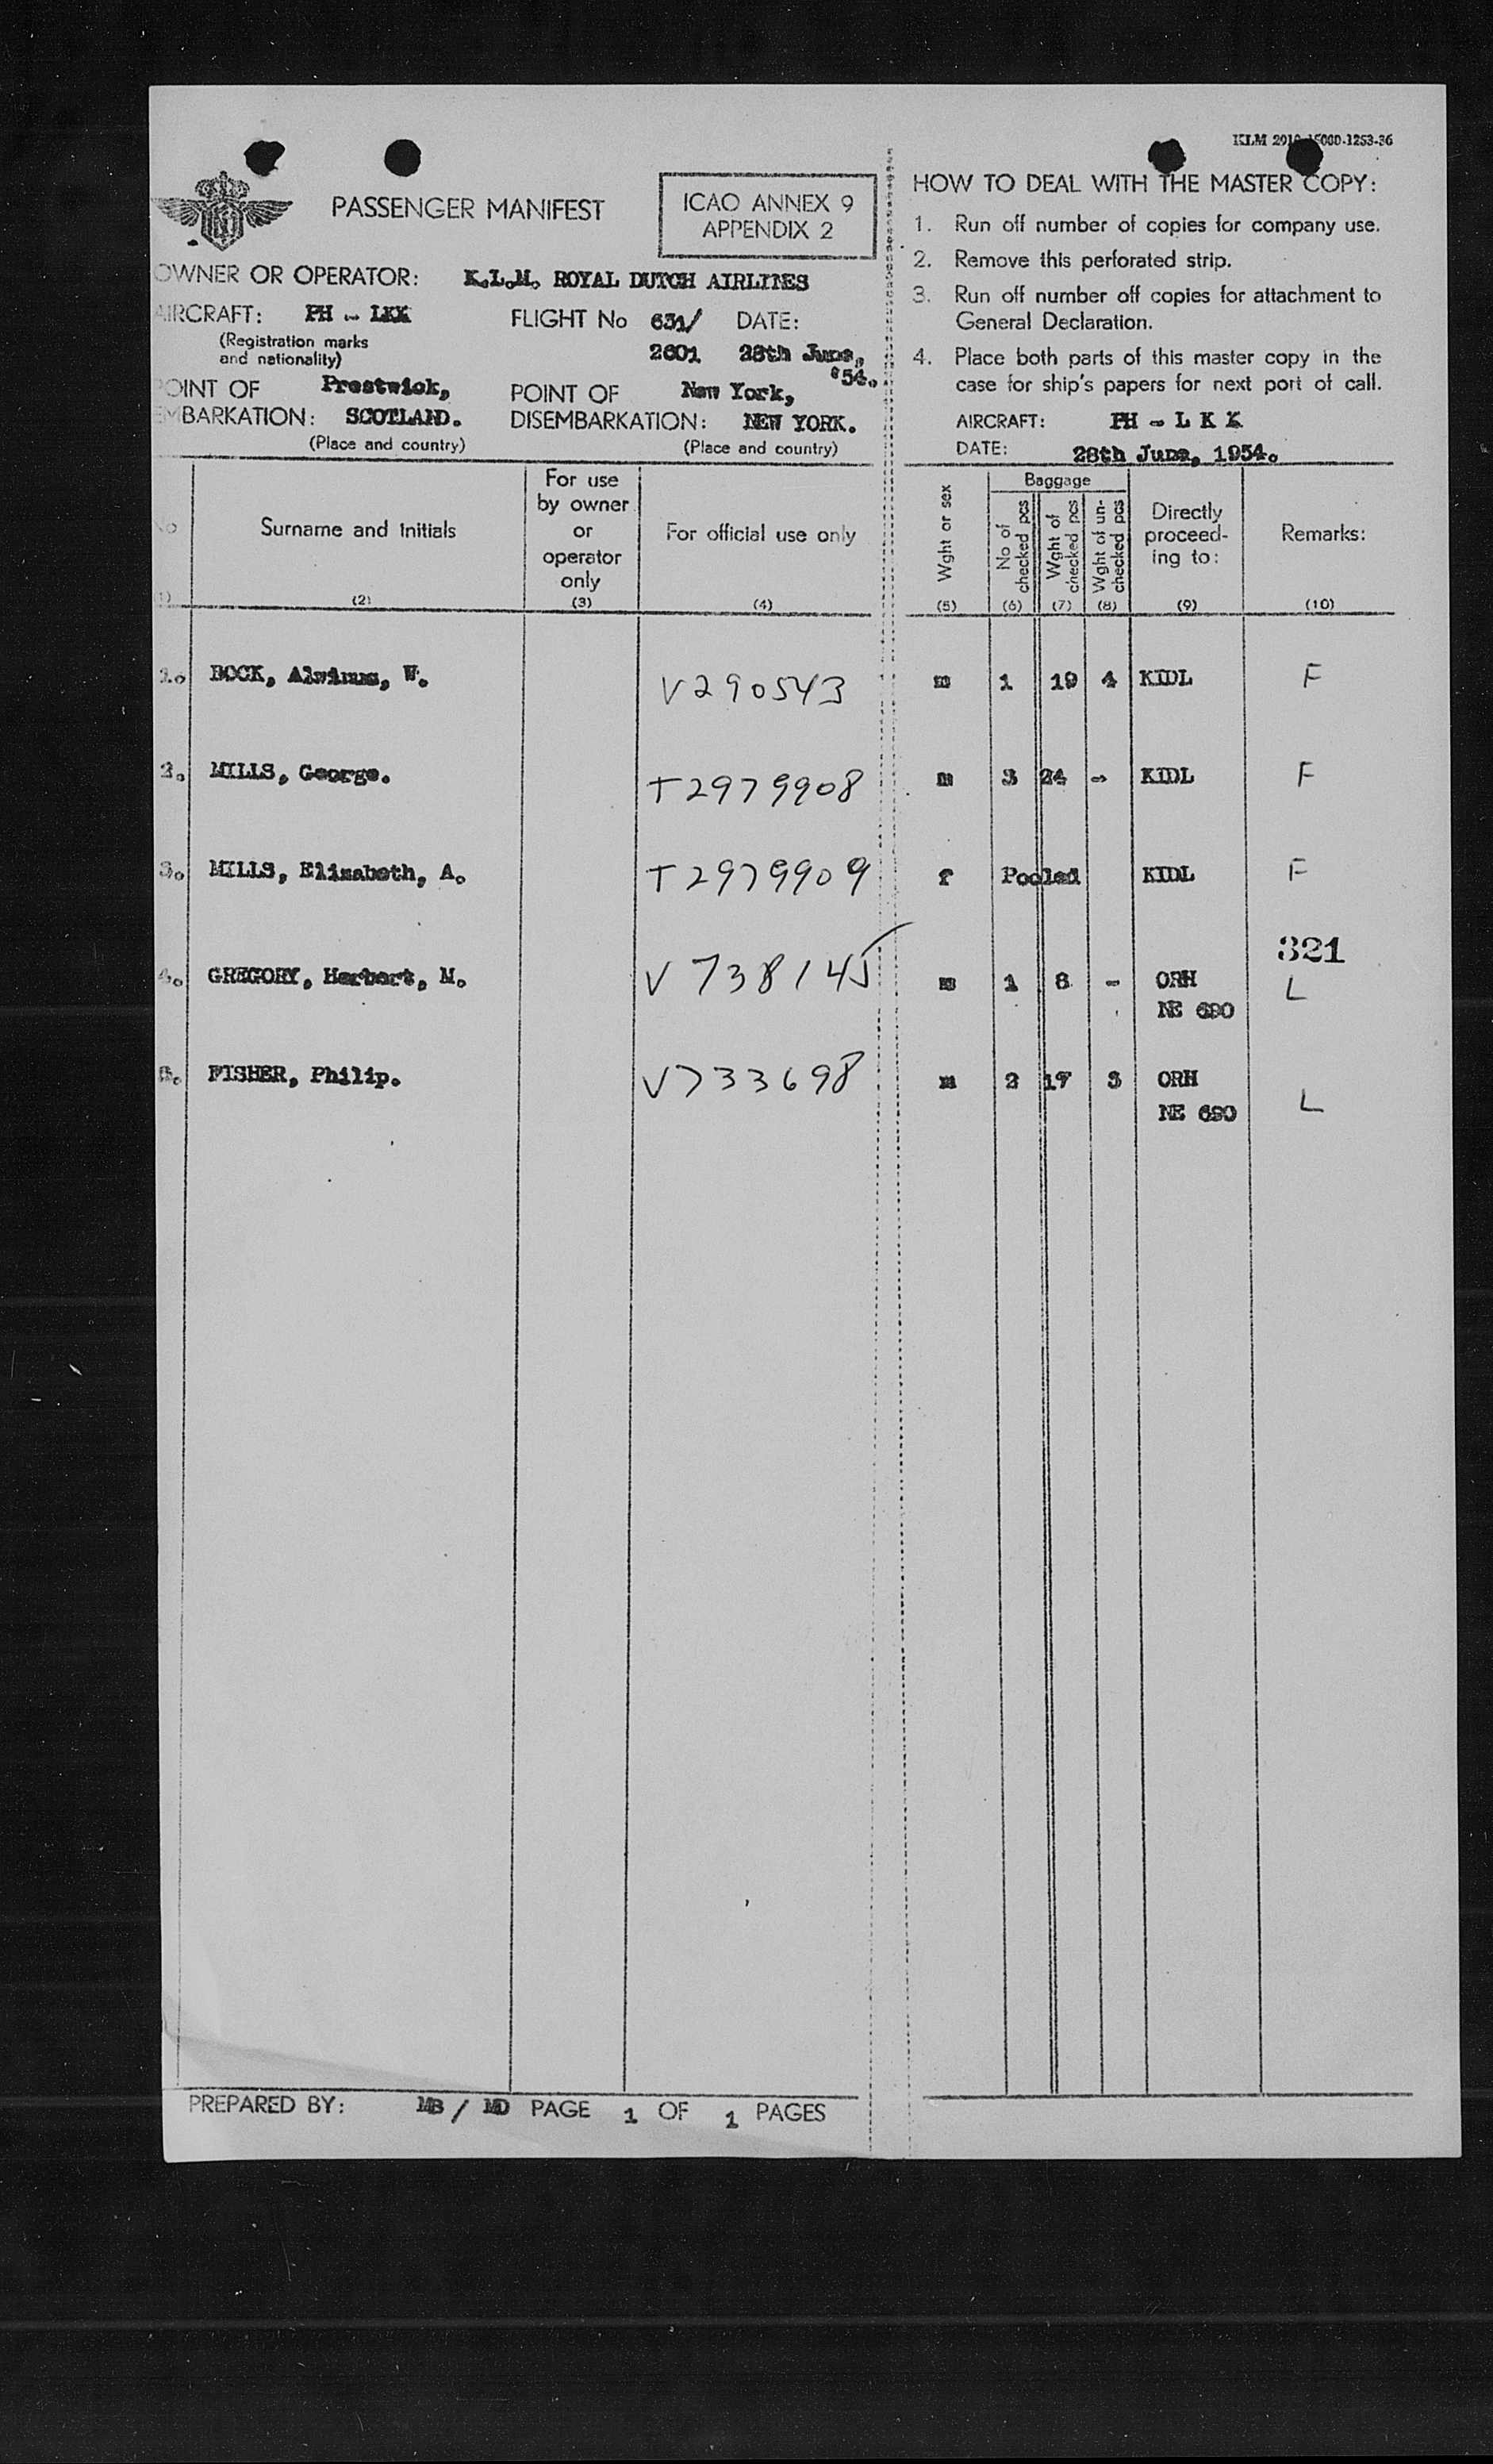 KLM
PASSENGER MANIFEST
ICAO ANNEX 9
APPENDIX 2
OWNER OR OPERATOR: K.L.M. ROYAL DUTCH AIRLINES
AIRCRAFT: PH - LKK
(Registration marks
and nationality)
FLIGHT No 631/
2601
DATE:
28th June,
'54.
POINT OF Prestwick,
EMBARKATION: SCOTLAND.
(Place and country)
POINT OF New York,
DISEMBARKATION: NEW YORK.
(Place and country)
HOW TO DEAL WITH THE MASTER COPY:
1. Run off number of copies for company use.
2. Remove this perforated strip.
3. Run off number off copies for attachment to
General Declaration.
4. Place both parts of this master copy in the
case for ship's papers for next port of call.
AIRCRAFT: PH - L K K
DATE: 28th June, 1954.
No
(1)
Surname and Initials
(2)
For use
by owner
or
operator
only
(3)
For official use only
(4)
Wght or sex
(5)
Baggage
No of
checked pcs
(6)
Wght of
checked pcs
(7)
Wght of un-
checked pcs
(8)
Directly
proceed-
ing to:
(9)
Remarks:
(10)
1. BOCK, Alwinus, W. V290543 m 1 19 4 KIDL F
2. MILLS, George. T2979908 m 3 24 - KIDL F
3. MILLS, Elizabeth, A. T2979909 f Pooled KIDL F
321
4. GREGORY, Herbert, M. V738145 m 1 8 - ORH L
NE 690
5. FISHER, Philip. V733698 m 2 17 3 ORH
NE 690 L
PREPARED BY: MB / MD PAGE 1 OF 1 PAGES